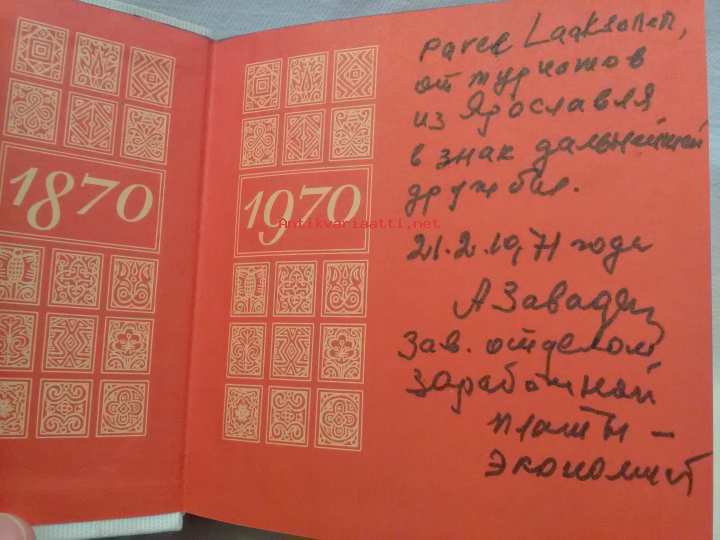 1870
1970
Antikvariaatti.net
Laaksonen,
от туристов
из Ярославля
в знак дальнейшей
дружбы.
21.2.1971 года
Зав. отделом
заработной
платы –
экономист